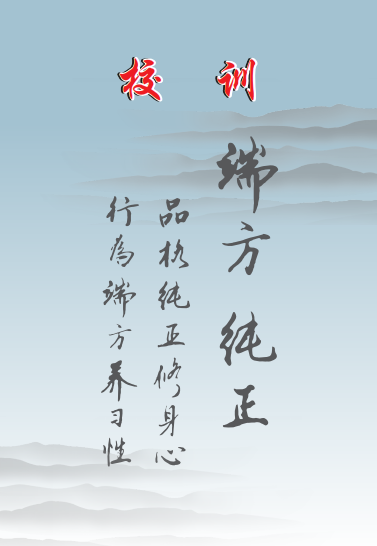 校训
端方 纯正
品格纯正修身心
行为端方养习性